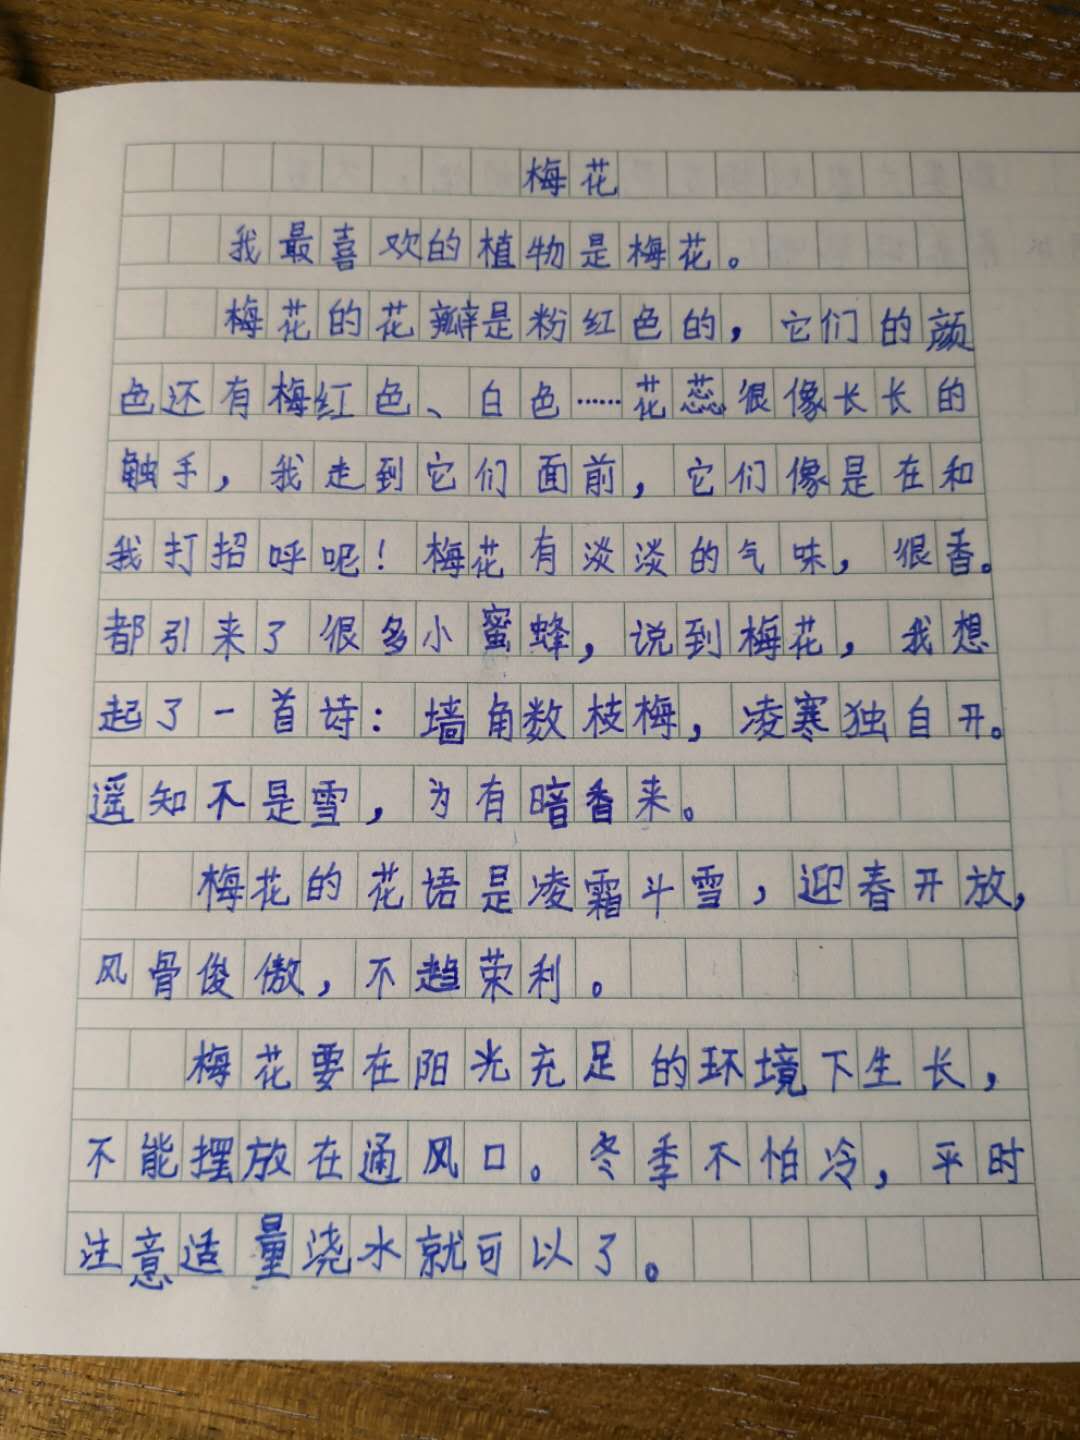 梅花
我最喜欢的植物是梅花。
梅花的花瓣是粉红色的，它们的颜
色还有梅红色、白色……花蕊很像长长的
触手，我走到它们面前，它们像是在和
我打招呼呢！梅花有淡淡的气味，很香。
都引来了很多小蜜蜂，说到梅花，我想
起了一首诗：墙角数枝梅，凌寒独自开。
遥知不是雪，为有暗香来。
梅花的花语是凌霜斗雪，迎春开放，
风骨俊傲，不趋荣利。
梅花要在阳光充足的环境下生长，
不能摆放在通风口。冬季不怕冷，平时
注意适量浇水就可以了。